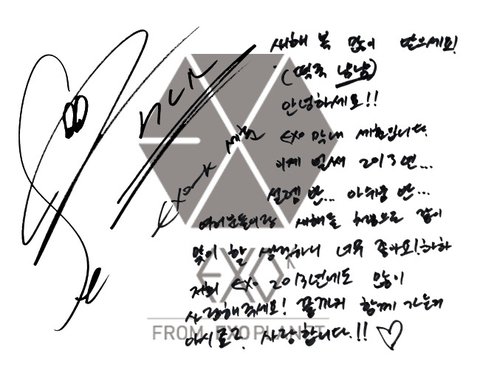 새해 복 많이 받으세요!
(떡국 냠냠)
안녕하세요!!
EXO 막내 세훈입니다.
이제 벌써 2013년...
설렘 반... 아쉬움 반...
여러분들이랑 새해를 처음으로 같이
맞이 할 생각하니 너무 좋아요!하하
저희 EXO 2013년에도 많이
사랑해주세요! 끝까지 함께 가는거
아시죠? 사랑합니다.!! ♡
EXO-K 세훈
EXO K
FROM. EXOPLANET